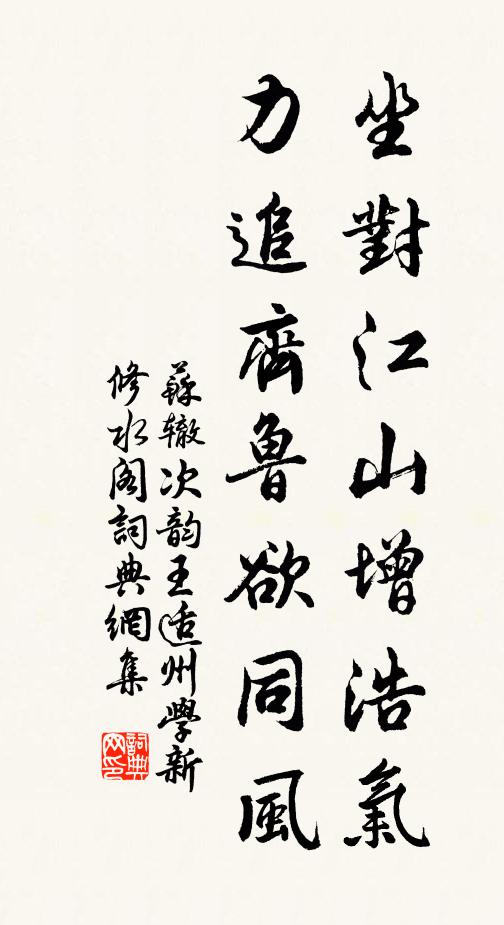 坐對江山增浩氣
力追齊魯欲同風
蘇辙次韵王适州學新
修水閣詞典網集
詞典
网印